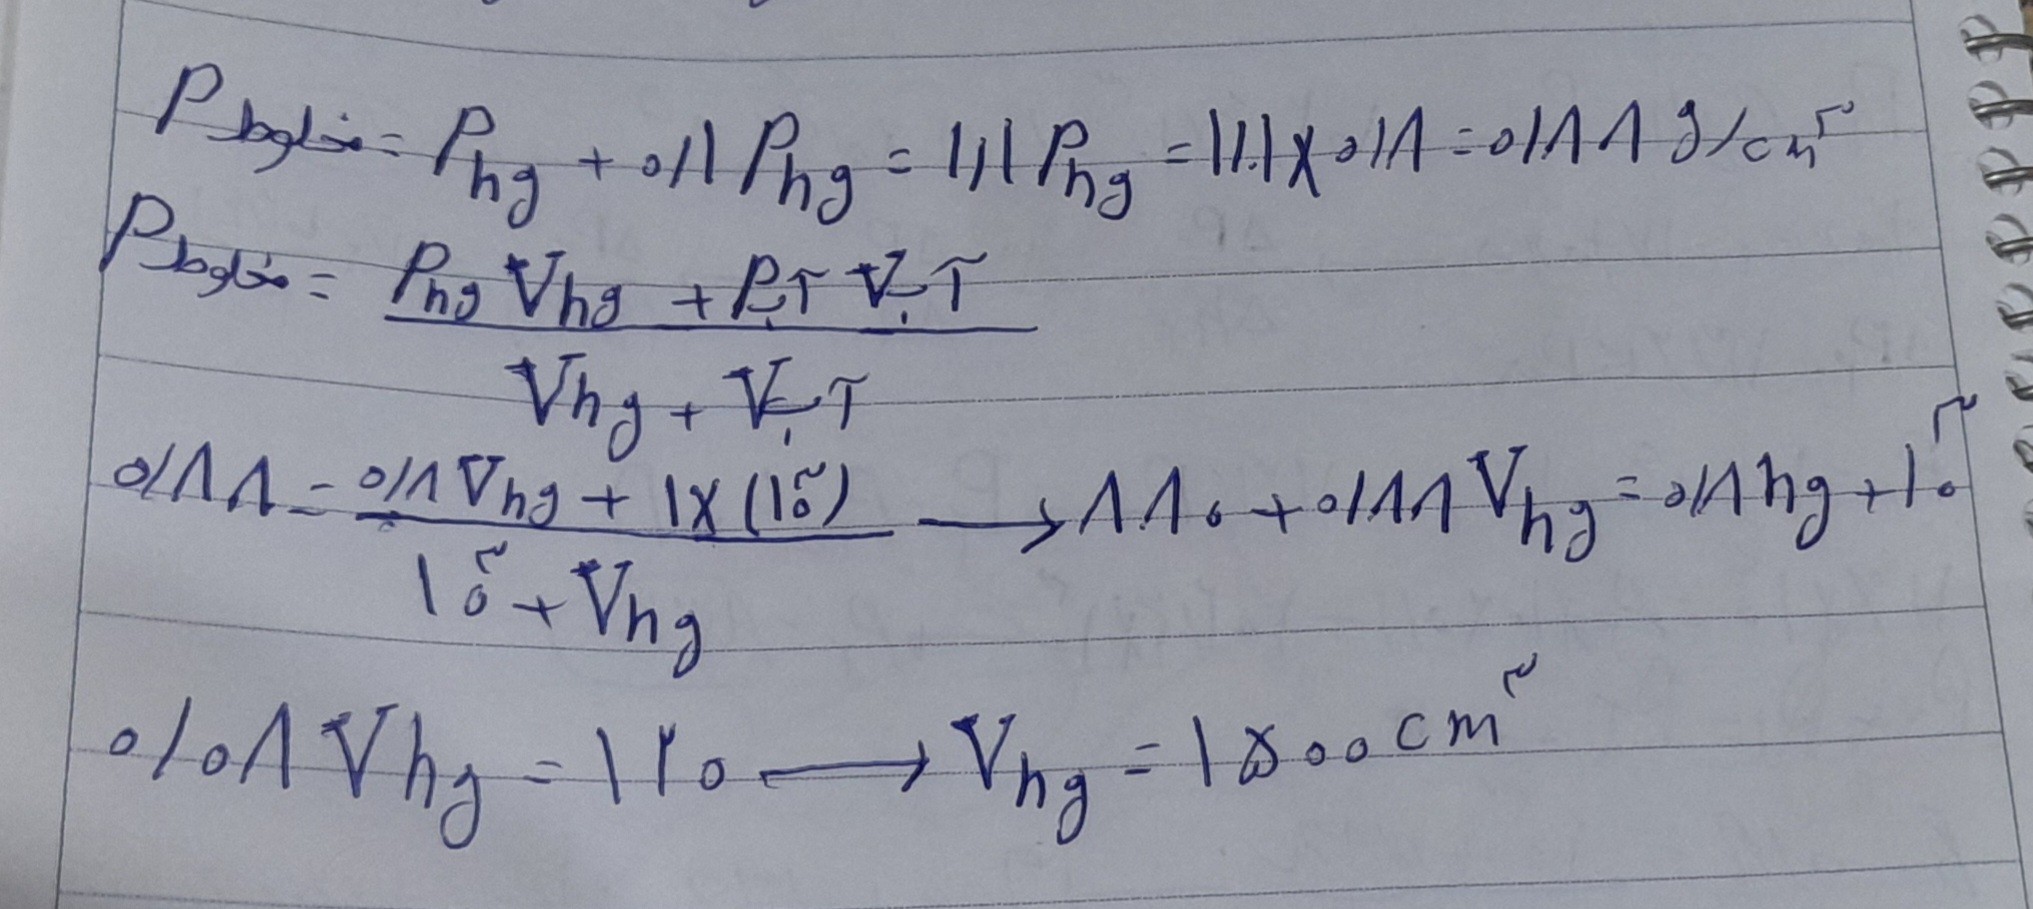 ρمخلوط = ρhg + ۰/۱ ρhg = ۱/۱ ρhg = ۱/۱ × ۰/۸ = ۰/۸۸ g/cm³
ρمخلوط = (ρhg Vhg + ρآب Vآب) / (Vhg + Vآب)
۰/۸۸ = (۰/۸ Vhg + ۱×(۱۰³)) / (۱۰³ + Vhg) → ۸۸۰ + ۰/۸۸ Vhg = ۰/۸ hg + ۱۰³
۰/۰۸ Vhg = ۱۲۰ → Vhg = ۱۵۰۰ cm³